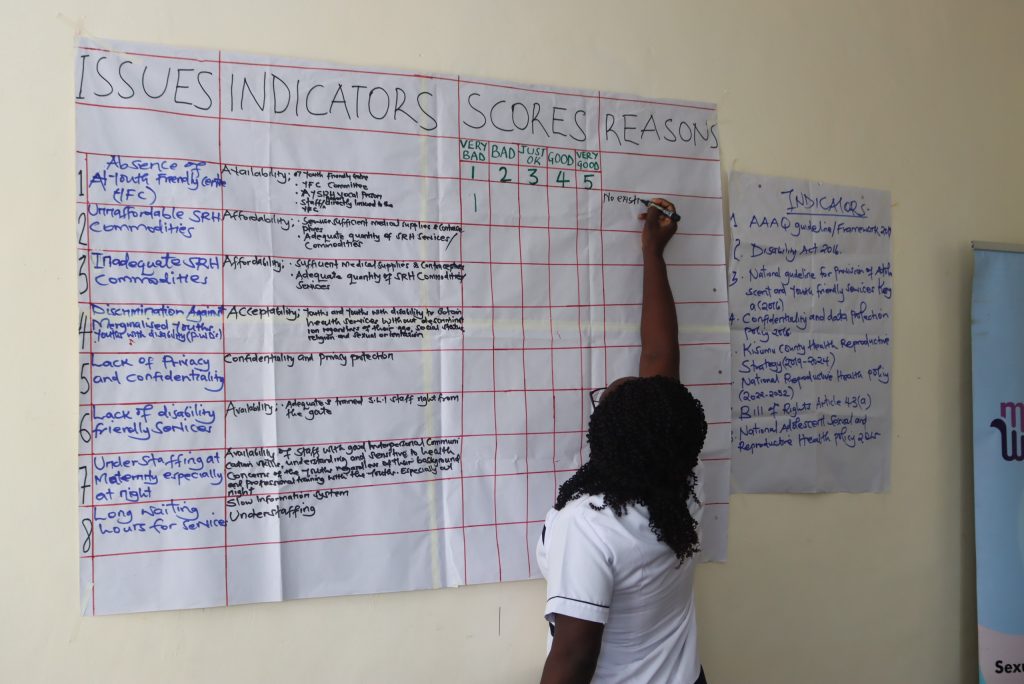 ISSUES INDICATORS SCORES REASONS
VERY BAD BAD JUST OK GOOD VERY GOOD
1 2 3 4 5
1 Absence of
A Youth Friendly Centre
(YFC)
Availability; of Youth Friendly Centre
• YFC Committee
• AYSRH Focal Person
• Staff directly linked to the
YFC
1
No exist
2 Unnaffordable SRH
Commodities
Affordability;
Sufficient medical supplies &
• Adequate quantity of SRH Services/
Commodities
3 Inadequate SRH
Commodities
Affordability; • Sufficient Medical supplies &
• Adequate quantity of SRH Commodities/
Services
4 Discrimination Against
Marginalised Youths
Youths with disability
Acceptability; Youths and Youths with disability to obtain
health services without discrimi
on regardless of their age, social status,
religion and sexual orientation
5 Lack of Privacy
and confidentiality
Confidentiality and privacy protection
6 Lack of disability
friendly services
Availability; • Adequate trained S.L.I staff right from
the gate
7 Understaffing at
Maternity especially
at night
Availability of staff with good Interpersonal Communi
cation skills, understanding and sensitive to health
Concerns of the Youths regardless of their background
and professional training with the Youths. Especially at
night
8 Long waiting
hours for services
Slow Information system
Understaffing
INDICATORS
1 AAAQ guideline/Framework
2. Disability Act 2016.
3. National guideline for provision of
scent and Youth friendly services
(2016)
4. Confidentiality and data protection
policy 2016
Kisumu County Health Reproductive
Strategy (2019-2024)
National Reproductive Health policy
(2022-2032)
Bill of Rights Article 43(a)
National Adolescent Sexual and
Reproductive Health policy 2015
Sexu